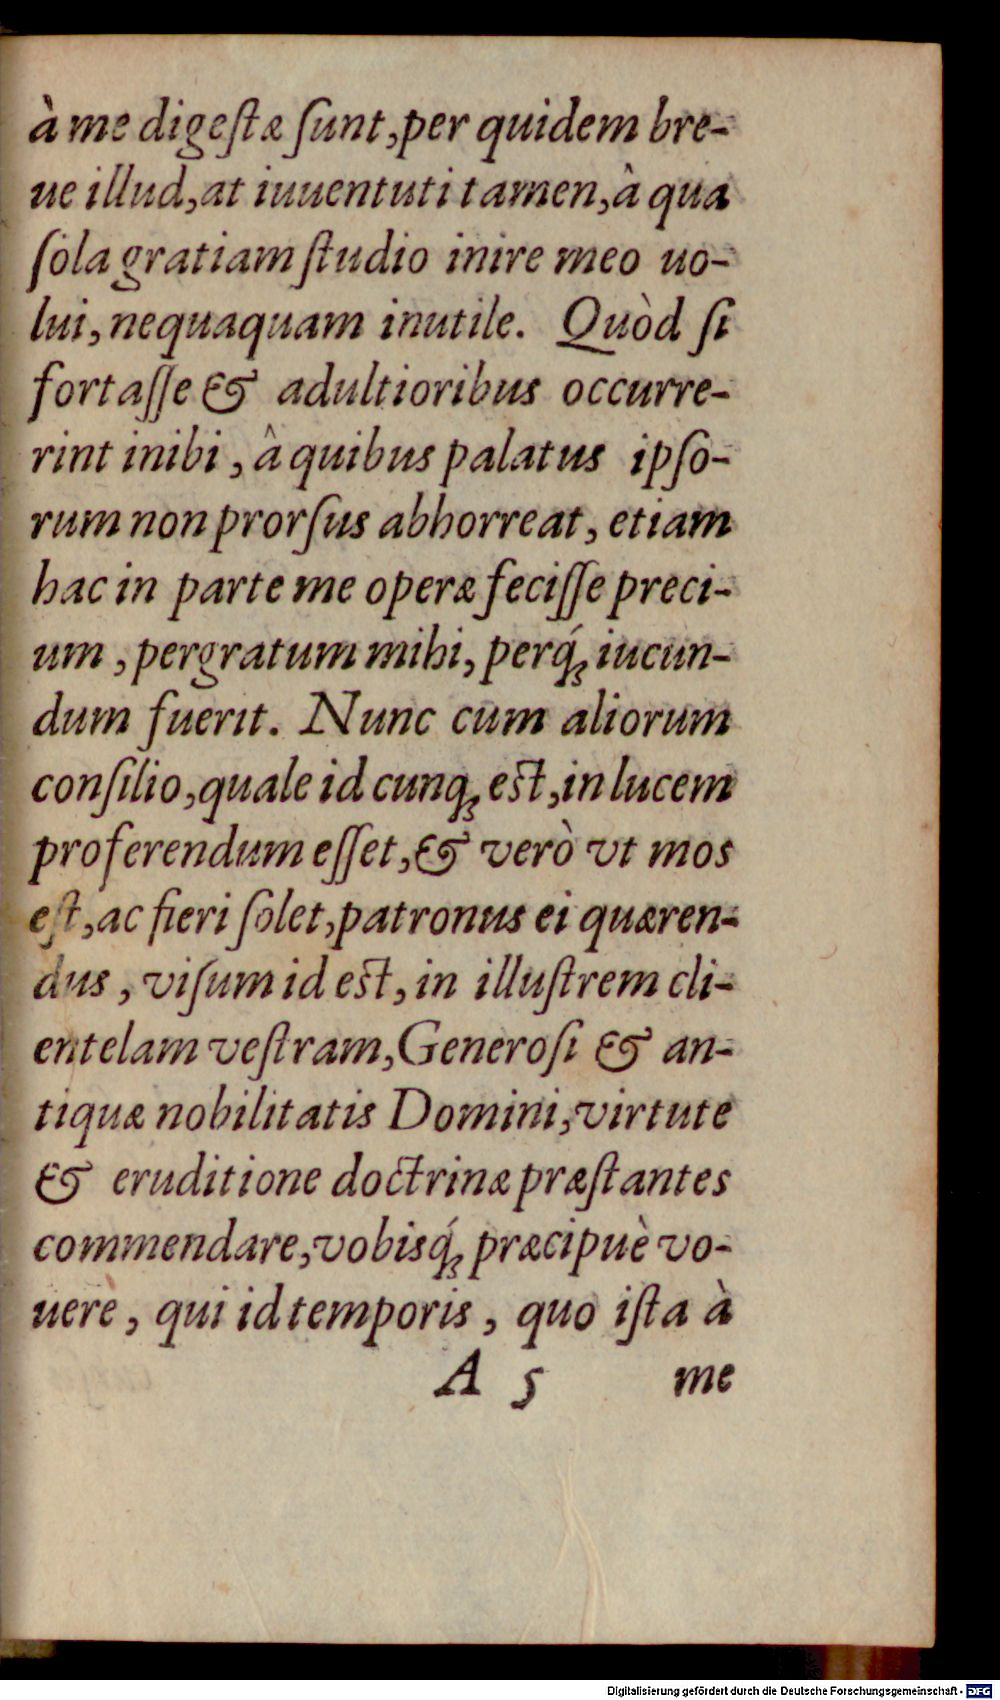 à me digeſtæ ſunt, per quidem bre-
ue illud, at iuuentuti tamen, à qua
ſola gratiam ſtudio inire meo uo-
lui, nequaquam inutile. Quòd ſi
fortaſſe & adultioribus occurre-
rint inibi, à quibus palatus ipſo-
rum non prorſus abhorreat, etiam
hac in parte me operæ feciſſe preci-
um, pergratum mihi, perq́ꝫ iucun-
dum fuerit. Nunc cum aliorum
conſilio, quale id cunqꝫ eſt, in lucem
proferendum eſſet, & verò vt mos
eſt, ac fieri ſolet, patronus ei quæren-
dus, viſum id eſt, in illuſtrem cli-
entelam veſtram, Generoſi & an-
tiquæ nobilitatis Domini, virtute
& eruditione doctrinæ præſtantes
commendare, vobisq́ꝫ præcipuè vo-
uere, qui id temporis, quo iſta à
A 5 me
Digitalisierung gefördert durch die Deutsche Forschungsgemeinschaft - DFG